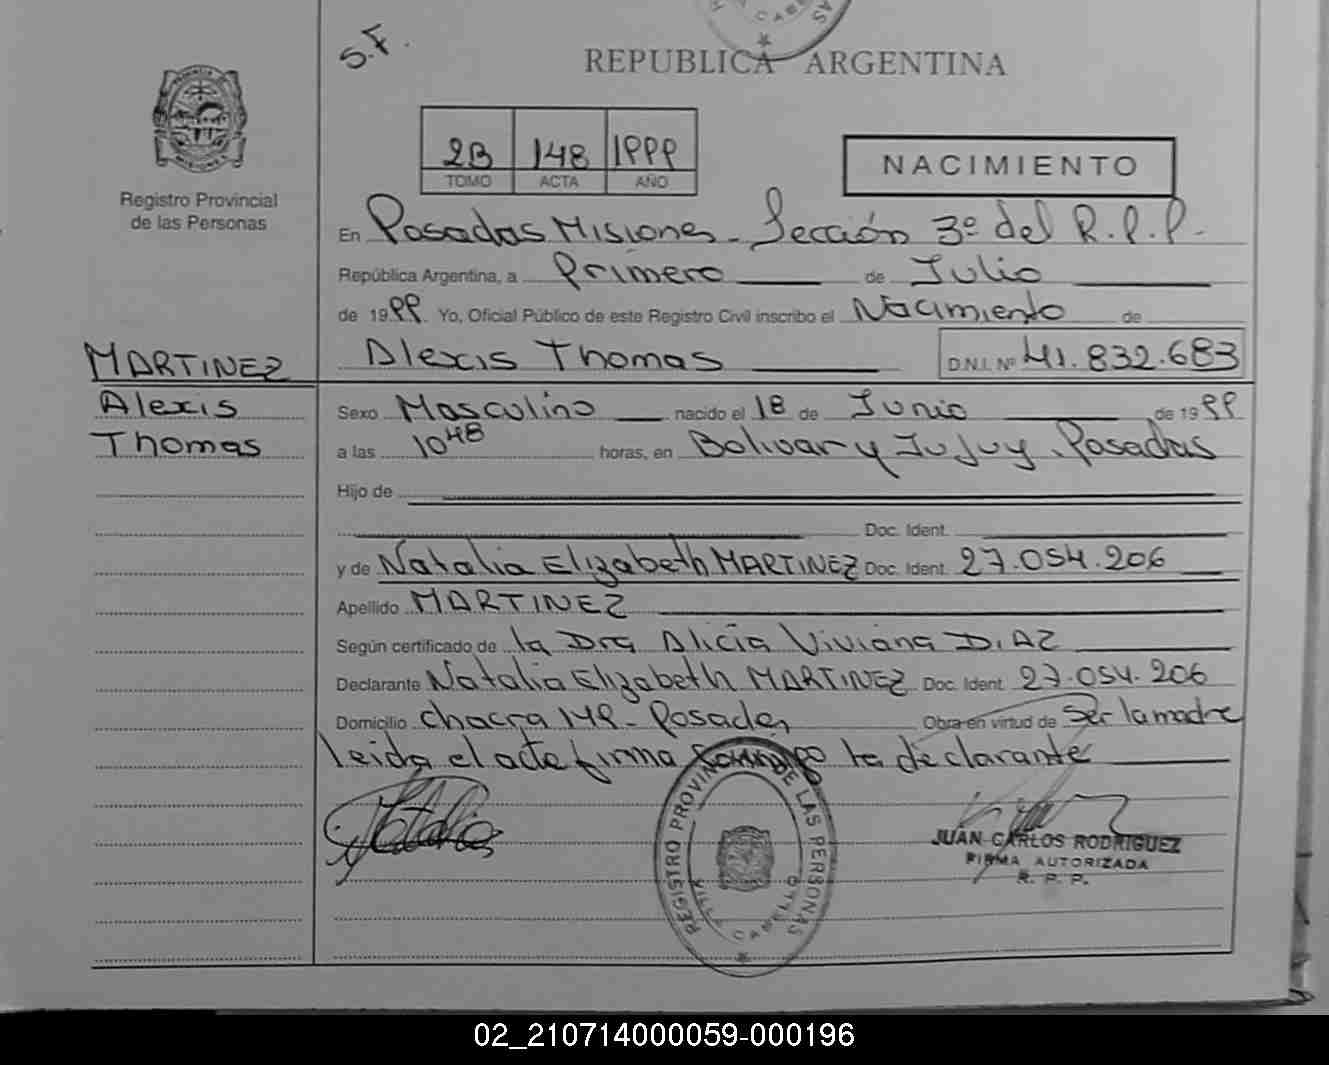 S.F.
REPUBLICA ARGENTINA
2B 148 1999
TOMO ACTA AÑO
NACIMIENTO
Registro Provincial
de las Personas
En Posadas Misiones - Sección 3º del R.P.P.-
República Argentina, a Primero de Julio
de 1999 Yo, Oficial Público de este Registro Civil inscribo el Nacimiento de
Alexis Thomas D.N.I. Nº 41.832.683
MARTINEZ
Alexis
Thomas
Sexo Masculino nacido el 18 de Junio de 1999
a las 10 48 horas, en Bolivar y Jujuy. Posadas
Hijo de
Doc. Ident.
y de Natalia Elizabeth MARTINEZ Doc. Ident. 27.054.206
Apellido MARTINEZ
Según certificado de la Dra Alicia Viviana DIAZ
Declarante Natalia Elizabeth MARTINEZ Doc. Ident. 27.054.206
Domicilio chacra 149- Posadas Obra en virtud de ser la madre
leida el acta firma la declarante
Natalia
REGISTRO PROVINCIAL DE LAS PERSONAS
VILLA CABELLO
JUAN CARLOS RODRIGUEZ
FIRMA AUTORIZADA
R. P. P.
02_210714000059-000196